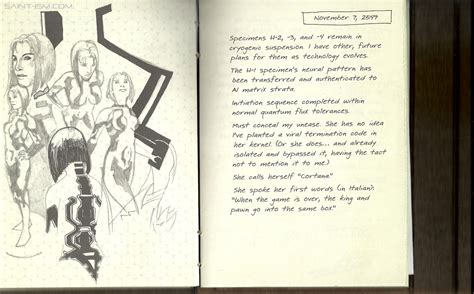 SAINT-ISM.COM
November 7, 2549
Specimens H-2, -3, and -4 remain in
cryogenic suspension I have other, future
plans for them as technology evolves.
The H-1 specimen's neural pattern has
been transferred and authenticated to
AI matrix strata.
Initiation sequence completed within
normal quantum flux tolerances.
Must conceal my unease. She has no idea
I've planted a viral termination code in
her kernel. (Or she does... and already
isolated and bypassed it, having the tact
not to mention it to me.)
She calls herself "Cortana"
She spoke her first words (in Italian):
"When the game is over, the king and
pawn go into the same box"